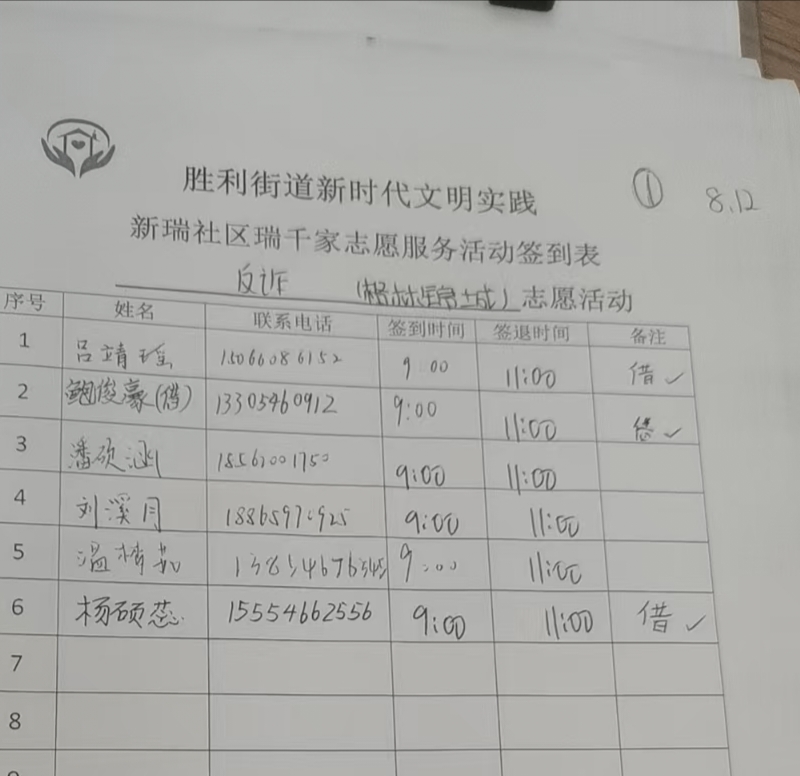 ① 8.12
胜利街道新时代文明实践
新瑞社区瑞千家志愿服务活动签到表
反诈 (格林锦城) 志愿活动
序号 姓名 联系电话 签到时间 签退时间 备注
1 吕靖瑶 15066086152 9:00 11:00 借 ✓
2 鲍俊豪(借) 13305460912 9:00 11:00 借 ✓
3 潘硕涵 18561001750 9:00 11:00
4 刘溪月 18865976925 9:00 11:00
5 温梓 13854676345 9:00 11:00
6 杨硕蕊 15554662556 9:00 11:00 借 ✓
7
8